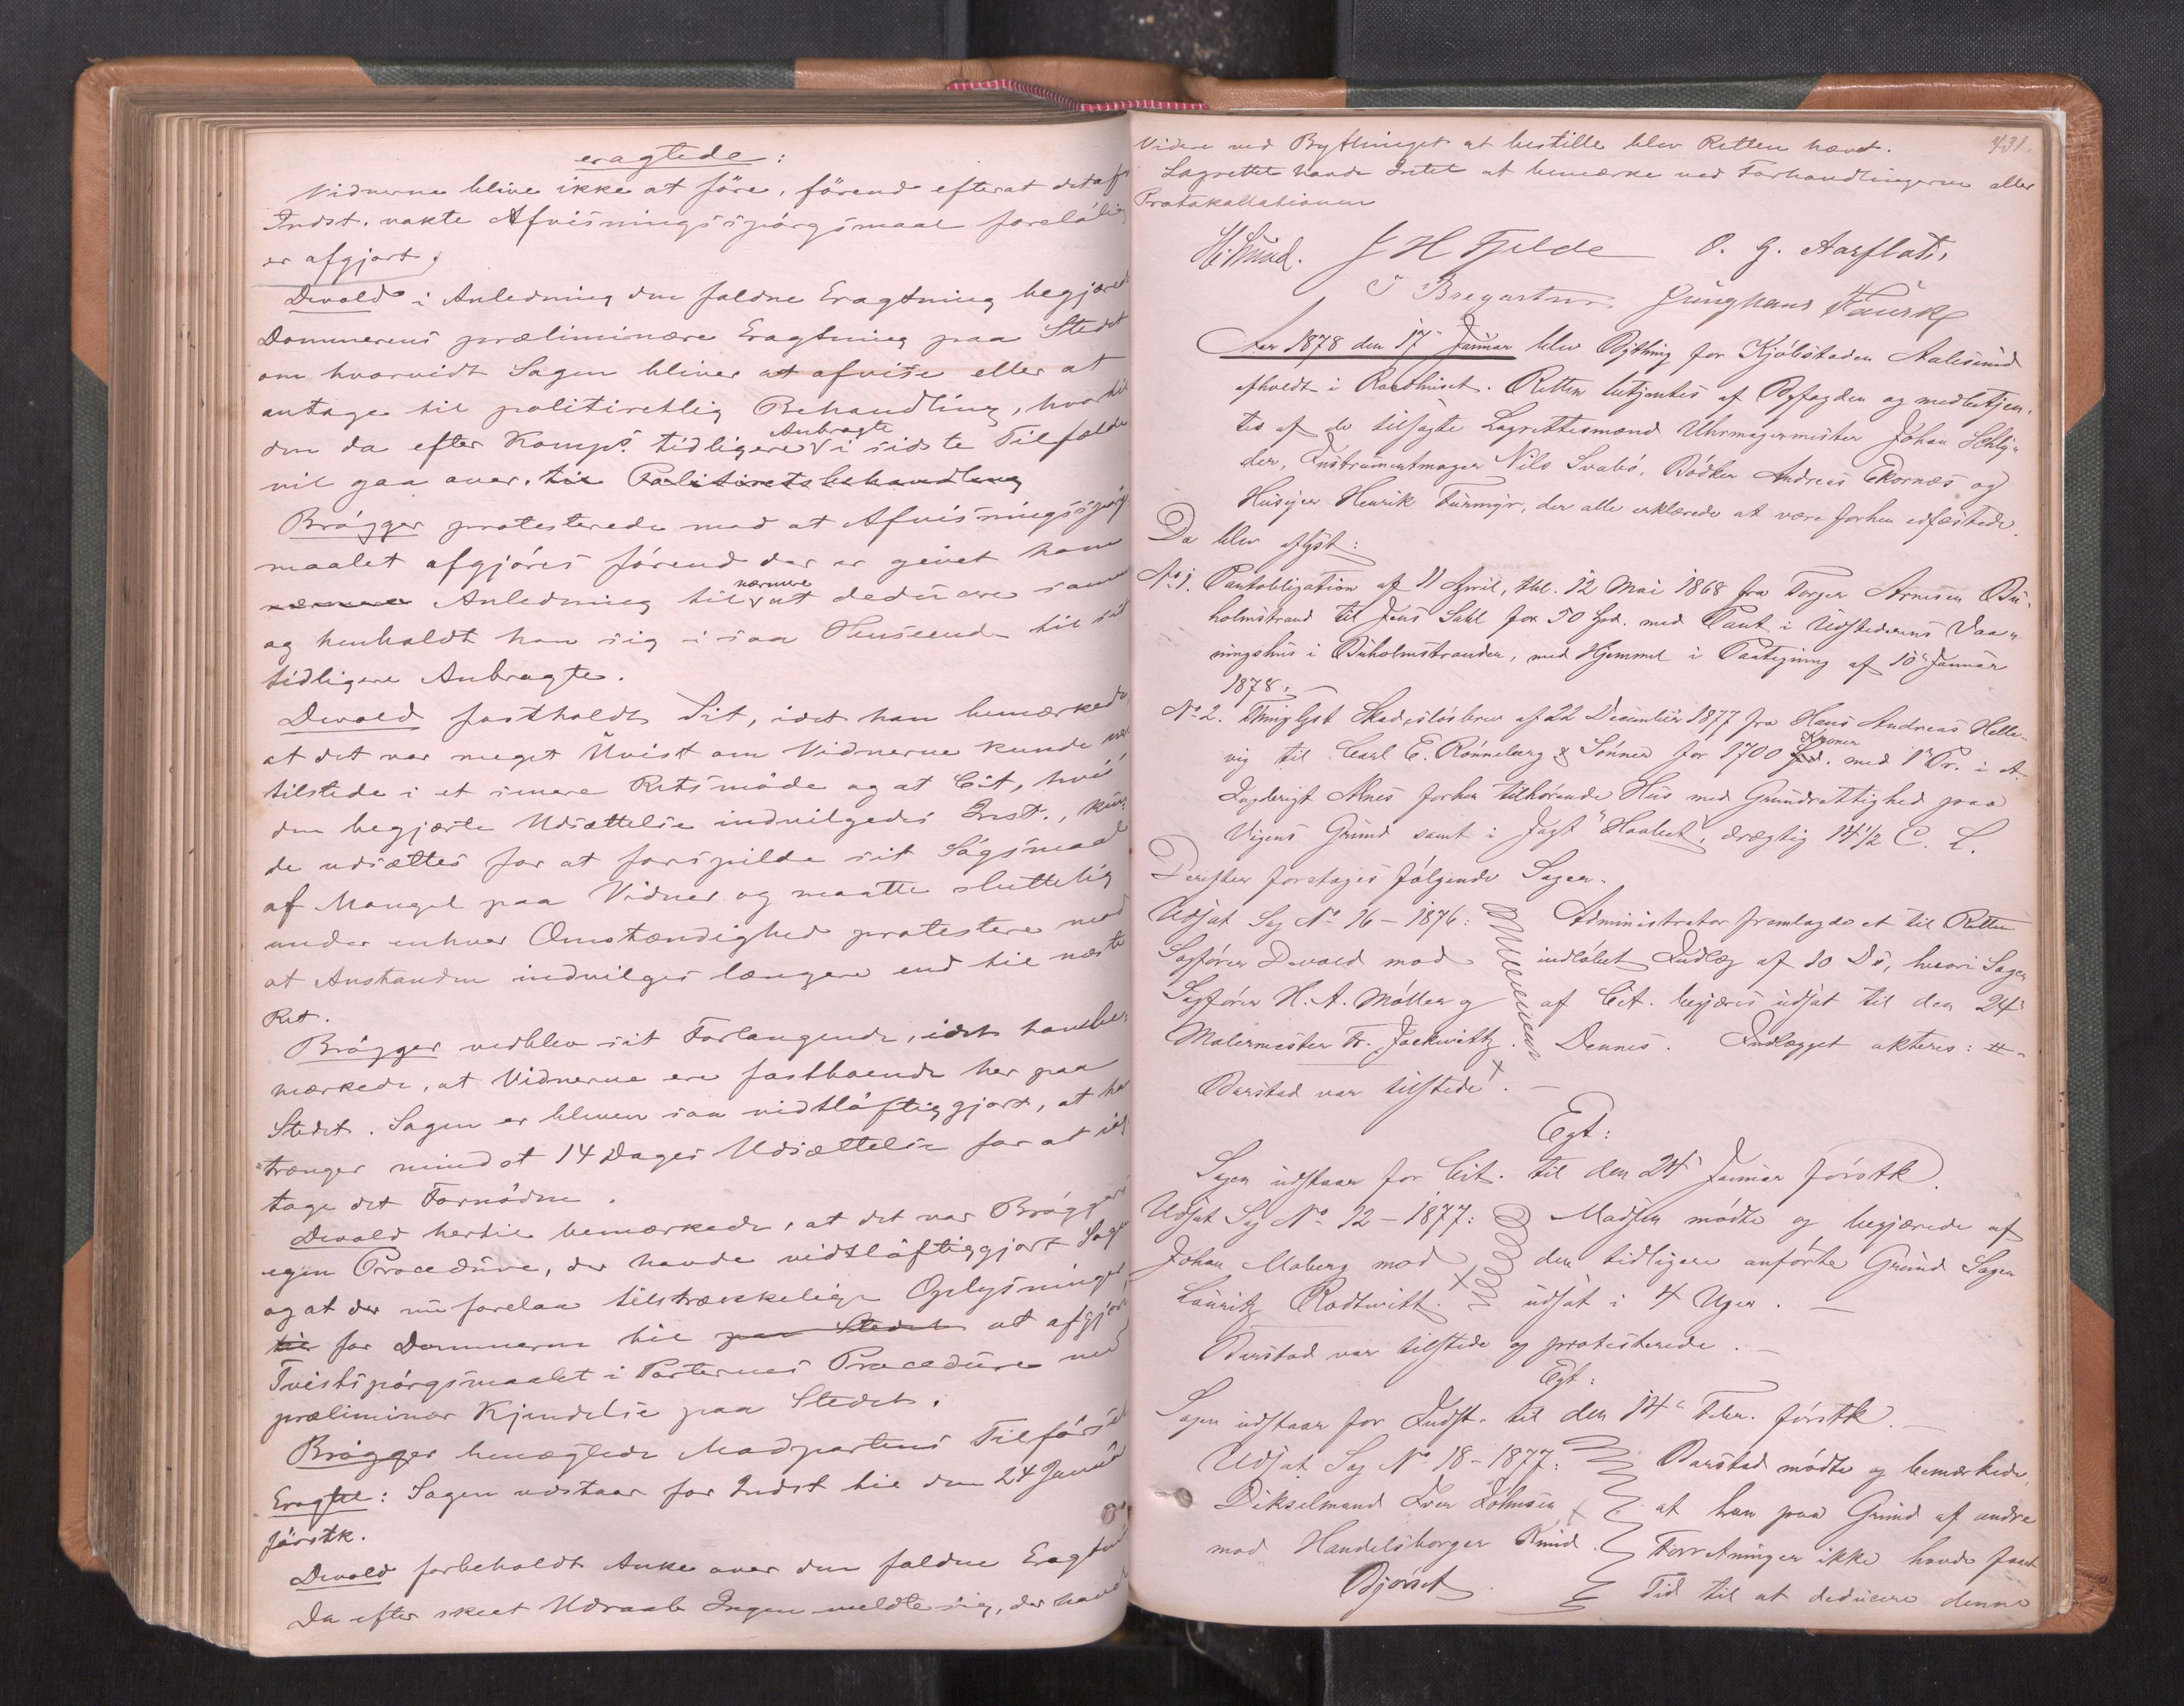 eragtede:
Vidnerne blive ikke at före, förend efterat det af
Indst. vakte Afvisningsspörgsmaal foreløbig
er afgjort.
Devold i Anledning den faldne Eragtning begjæred
Dommerens præliminære Eragtning paa Stedet
om hvorvidt Sagen bliver at afvise eller at
antage til politiretlig Behandling, hvortil
den da efter Komps. tidligere Anbragte i sidste Tilfælde
vil gaa over. til Politiretsbehandling
Brögger protesterede mod at Afvisningsspörgs
maalet afgjöres förend der er givet ham
nærmere Anledning til nærmere at deducere samme
og henholdt han sig i saa Henseende til sit
tidligere Anbragte.
Devold fastholdt Sit, idet han bemærkede,
at det var meget Uvist om Vidnerne kunde være
tilstede i et senere Retsmöde og at Cit, hvis
den begjærte Udsættelse indvilgedes Indst., kun-
de udsættes for at forspilde sit Sögsmaal
af Mangel paa Vidner og maatte sluttelig
under enhver Omstændighed protestere mod
at Anstanden indvilges længere end til næste
Ret.
Brögger vedblev sit Forlangende, idet han be-
mærkede, at Vidnerne ere fastboende her paa
Stedet. Sagen er bleven saa vidtlöftiggjort, at han
trænger mindst 14 Dages Udsættelse for at iagt
tage det Fornödne.
Devold hertil bemærkede, at det var Bröggers
egen Procedüre, der havde vidtlöftiggjort Sagen
og at der nu forelaa tilstrækkelige Oplysninger
til for Dommeren til paa Stedet at afgjöre
Tvistspörgsmaalet i Parternes Procedüre ved
præliminær Kjendelse paa Stedet.
Brögger benægtede Modpartens Tilförsel
Eragtet: Sagen udstaar for Indst til den 24 Januar
förstk.
Devold forbeholdt Anke over den faldne Eragtning
Da efter skeet Udraab Ingen meldte sig, der havde
431.
Videre ved Bythinget at bestille blev Retten hævet.
Lagrettet havde Intet at bemærke ved Forhandlingerne eller
Protokollationen
J H Fjelde O. G. Aarflot.
Junghans Kaurske
Aar 1878 den 17 Januar blev Bything for Kjöbstaden Aalesund
afholdt i Raadhuset. Retten betjentes af Byfogden og medbetjen-
tes af de tilsagte Lagrettesmænd Uhrmagermester Johan Schly-
der, Instrumentmager Nils Svabö, Bödker Andreas Ekornæs og
Huseier Henrik Furmyr, der alle erklærede at være forhen edfæstede.
Da blev aflyst:
No 1. Pantobligation af 11 April, thl. 12 Mai 1868 fra Torger Arnesen Bu-
holmstrand til Jens Sahl for 50 Spd. med Pant i Udstederens Vaa-
ningshus i Buholmstranden, med Hjemmel i Paategning af 10 Januar
1878.
No 2. Thinglyst Skadeslösbrev af 22 December 1877 fra Hans Andreas Helle-
vig til Carl E. Rönneberg & Sönner for 1700 Kroner Spd. med 1 Pr. i A.
Ingbrigt Alnes forhen tilhörende Hus med Grundrettighed paa
Vigens Grund samt i Jagt "Haabet", drægtig 14 1/2 C. L.
Derefter foretages fölgende Sager.
Udsat Sag No 16 - 1876: Administrator fremlagde et til Retten
Sagförer Devold mod indlöbet Indlæg af 10 Ds, hvori Sagen
Sagförer H. A. Möller og af Cit. begjæres udsat til den 24
Malermester Fr. Jackwitz. Dennes. Indlægget akteres: #
Barstad var tilstede.
Egt:
Sagen udstaar for Cit. til den 24 Januar förstk.
Udsat Sag No 12 - 1877: Madsen mödte og begjærede af
Johan Moberg mod den tidligere anförte Grund Sagen
Lauritz Rodtwitt. udsat i 4 Uger.
Barstad var tilstede og protesterede.
Egt:
Sagen udstaar for Indst. til den 14 Febr. förstk.
Udsat Sag No 18 - 1877: Barstad mödte og bemærkede
Dikselmand Iver Johnsen at han paa Grund af andre
mod Handelsborger Knud Forretninger ikke havde faaet
Bjørset Tid til at deducere denne